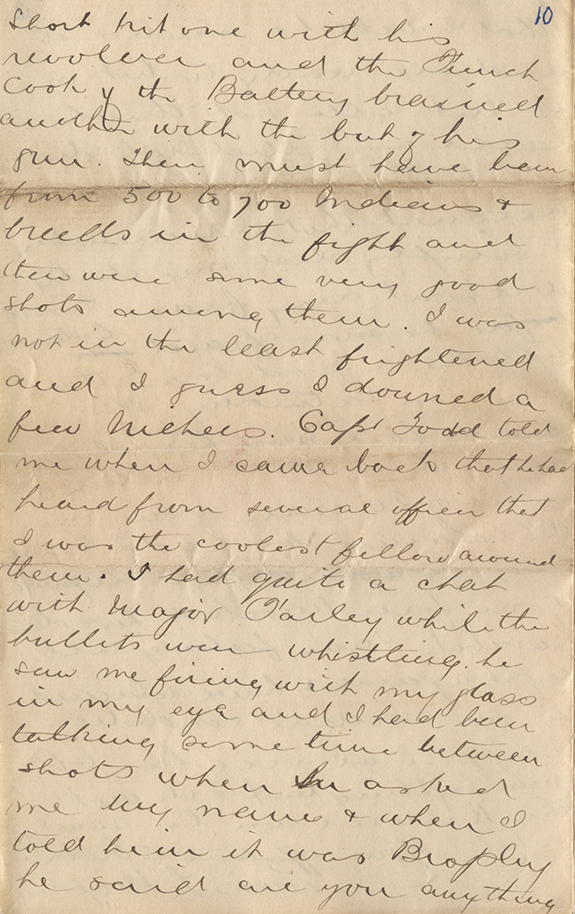 10
Short hit one with his
revolver and the French
Cook of the Battery brained
another with the but of his
gun. There must have been
from 500 to 700 Indians &
breeds in the fight and
there were some very good
shots among them. I was
not in the least frightened
and I guess I downed a
few Nichees. Capt Todd told
me when I came back that he had
heard from several officers that
I was the coolest fellow around
them. I had quite a chat
with Major
while the
bullets were whistling. he
saw me firing with my glass
in my eye and I had been
talking some time between
shots when he asked
me my name & when I
told him it was Brophy
he said are you anything